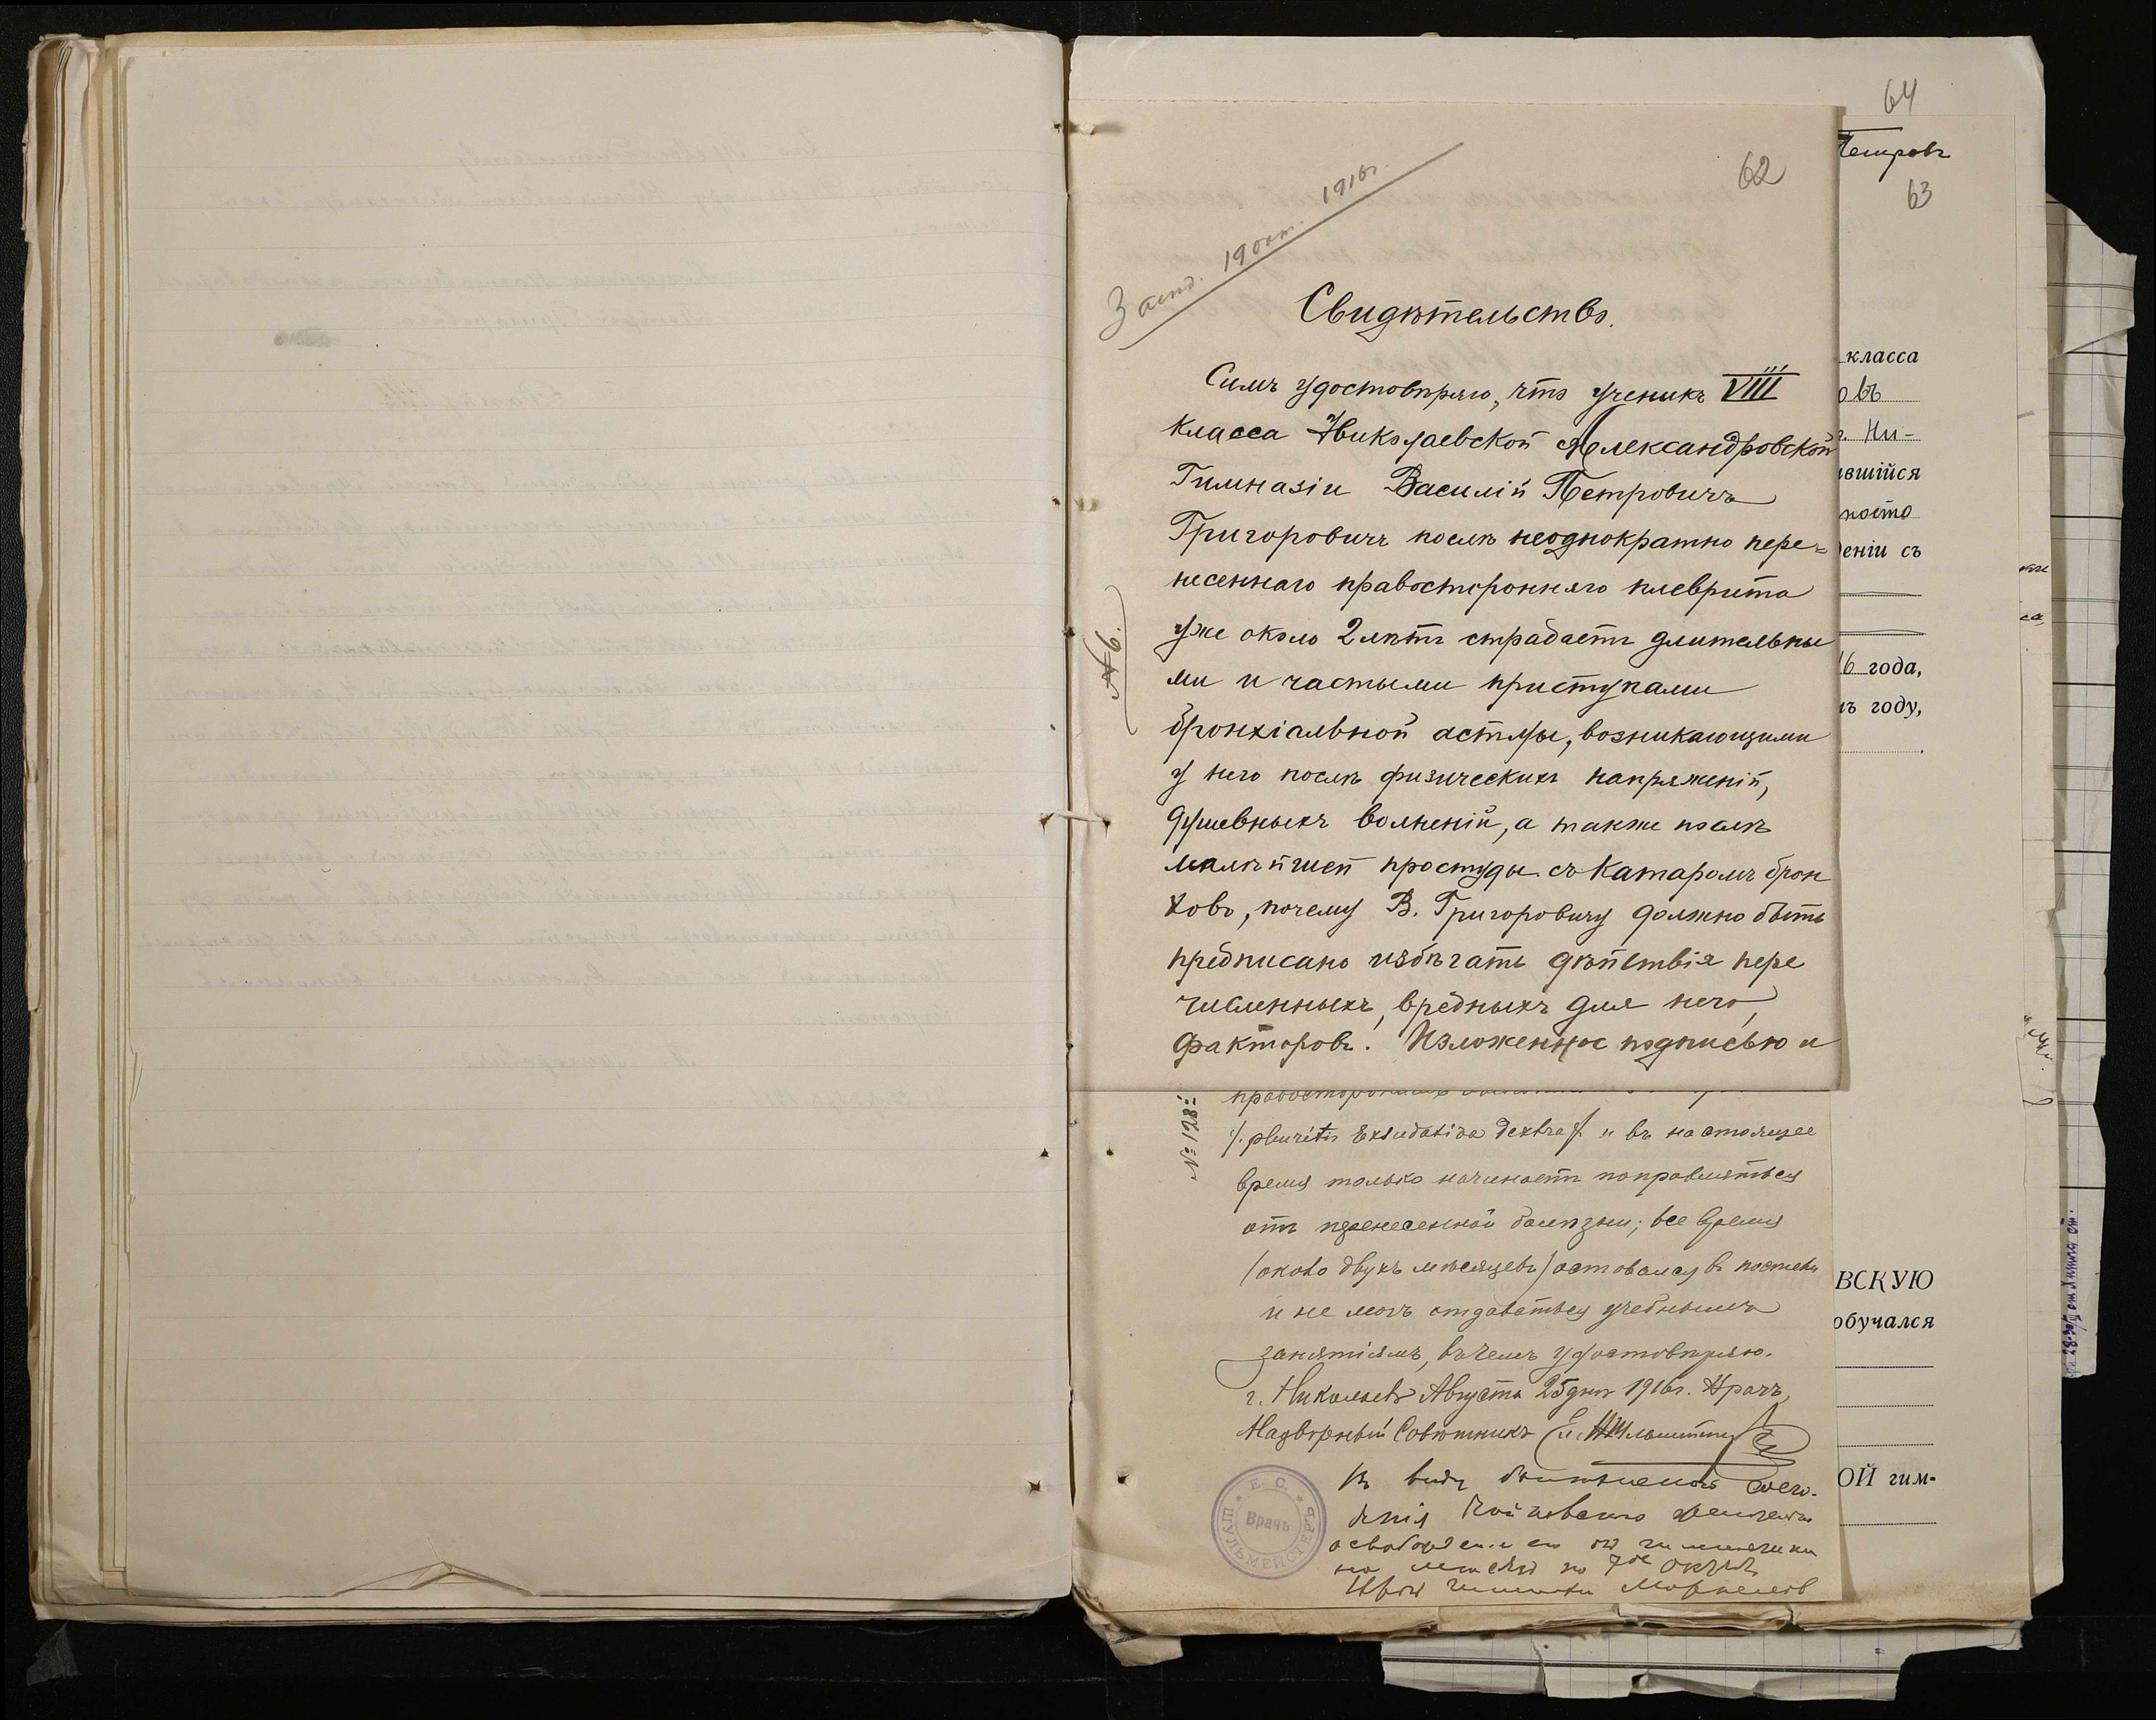 64
Петровъ
62
63
19 окт. 1916 г.
Свидѣтельство.
Симъ удостовѣряю, что ученикъ VIII
класса Николаевской Александровской
Гимназіи Василій Петровичъ
Григоровичъ послѣ неоднократно пере-
несеннаго правосторонняго плеврита
уже около 2 лѣтъ страдаетъ длительны
ми и частыми приступами
бронхіальной астмы, возникающими
у него послѣ физическихъ напряженій,
душевныхъ волненій, а также послѣ
малѣйшей простуды съ катаромъ брон
ховъ, почему В. Григоровичу должно быть
предписано избѣгать дѣйствія пере
численныхъ, вредныхъ для него,
факторовъ. Изложенное подписью и
№ 6.
№ 128
/. pleuritis exsudativa dextra /. и въ настоящее
время только начинаетъ поправляться
отъ перенесенной болѣзни; все время
(около двухъ мѣсяцевъ) оставался въ постели
и не могъ отдаваться учебнымъ
занятіямъ, въ чемъ удостовѣряю.
г. Николаевъ Августа 25 дня 1916 г. Врачъ,
Надворный Совѣтникъ
Е. С. ШУЛЬМЕЙСТЕРЪ
Врачъ
Въ виду
освобожденіе отъ гимнастики
на по 7ое
класса
овъ
г. Ни-
вшійся
еніи съ
16 года,
ъ году,
ВСКУЮ
обучался
ОЙ гим-